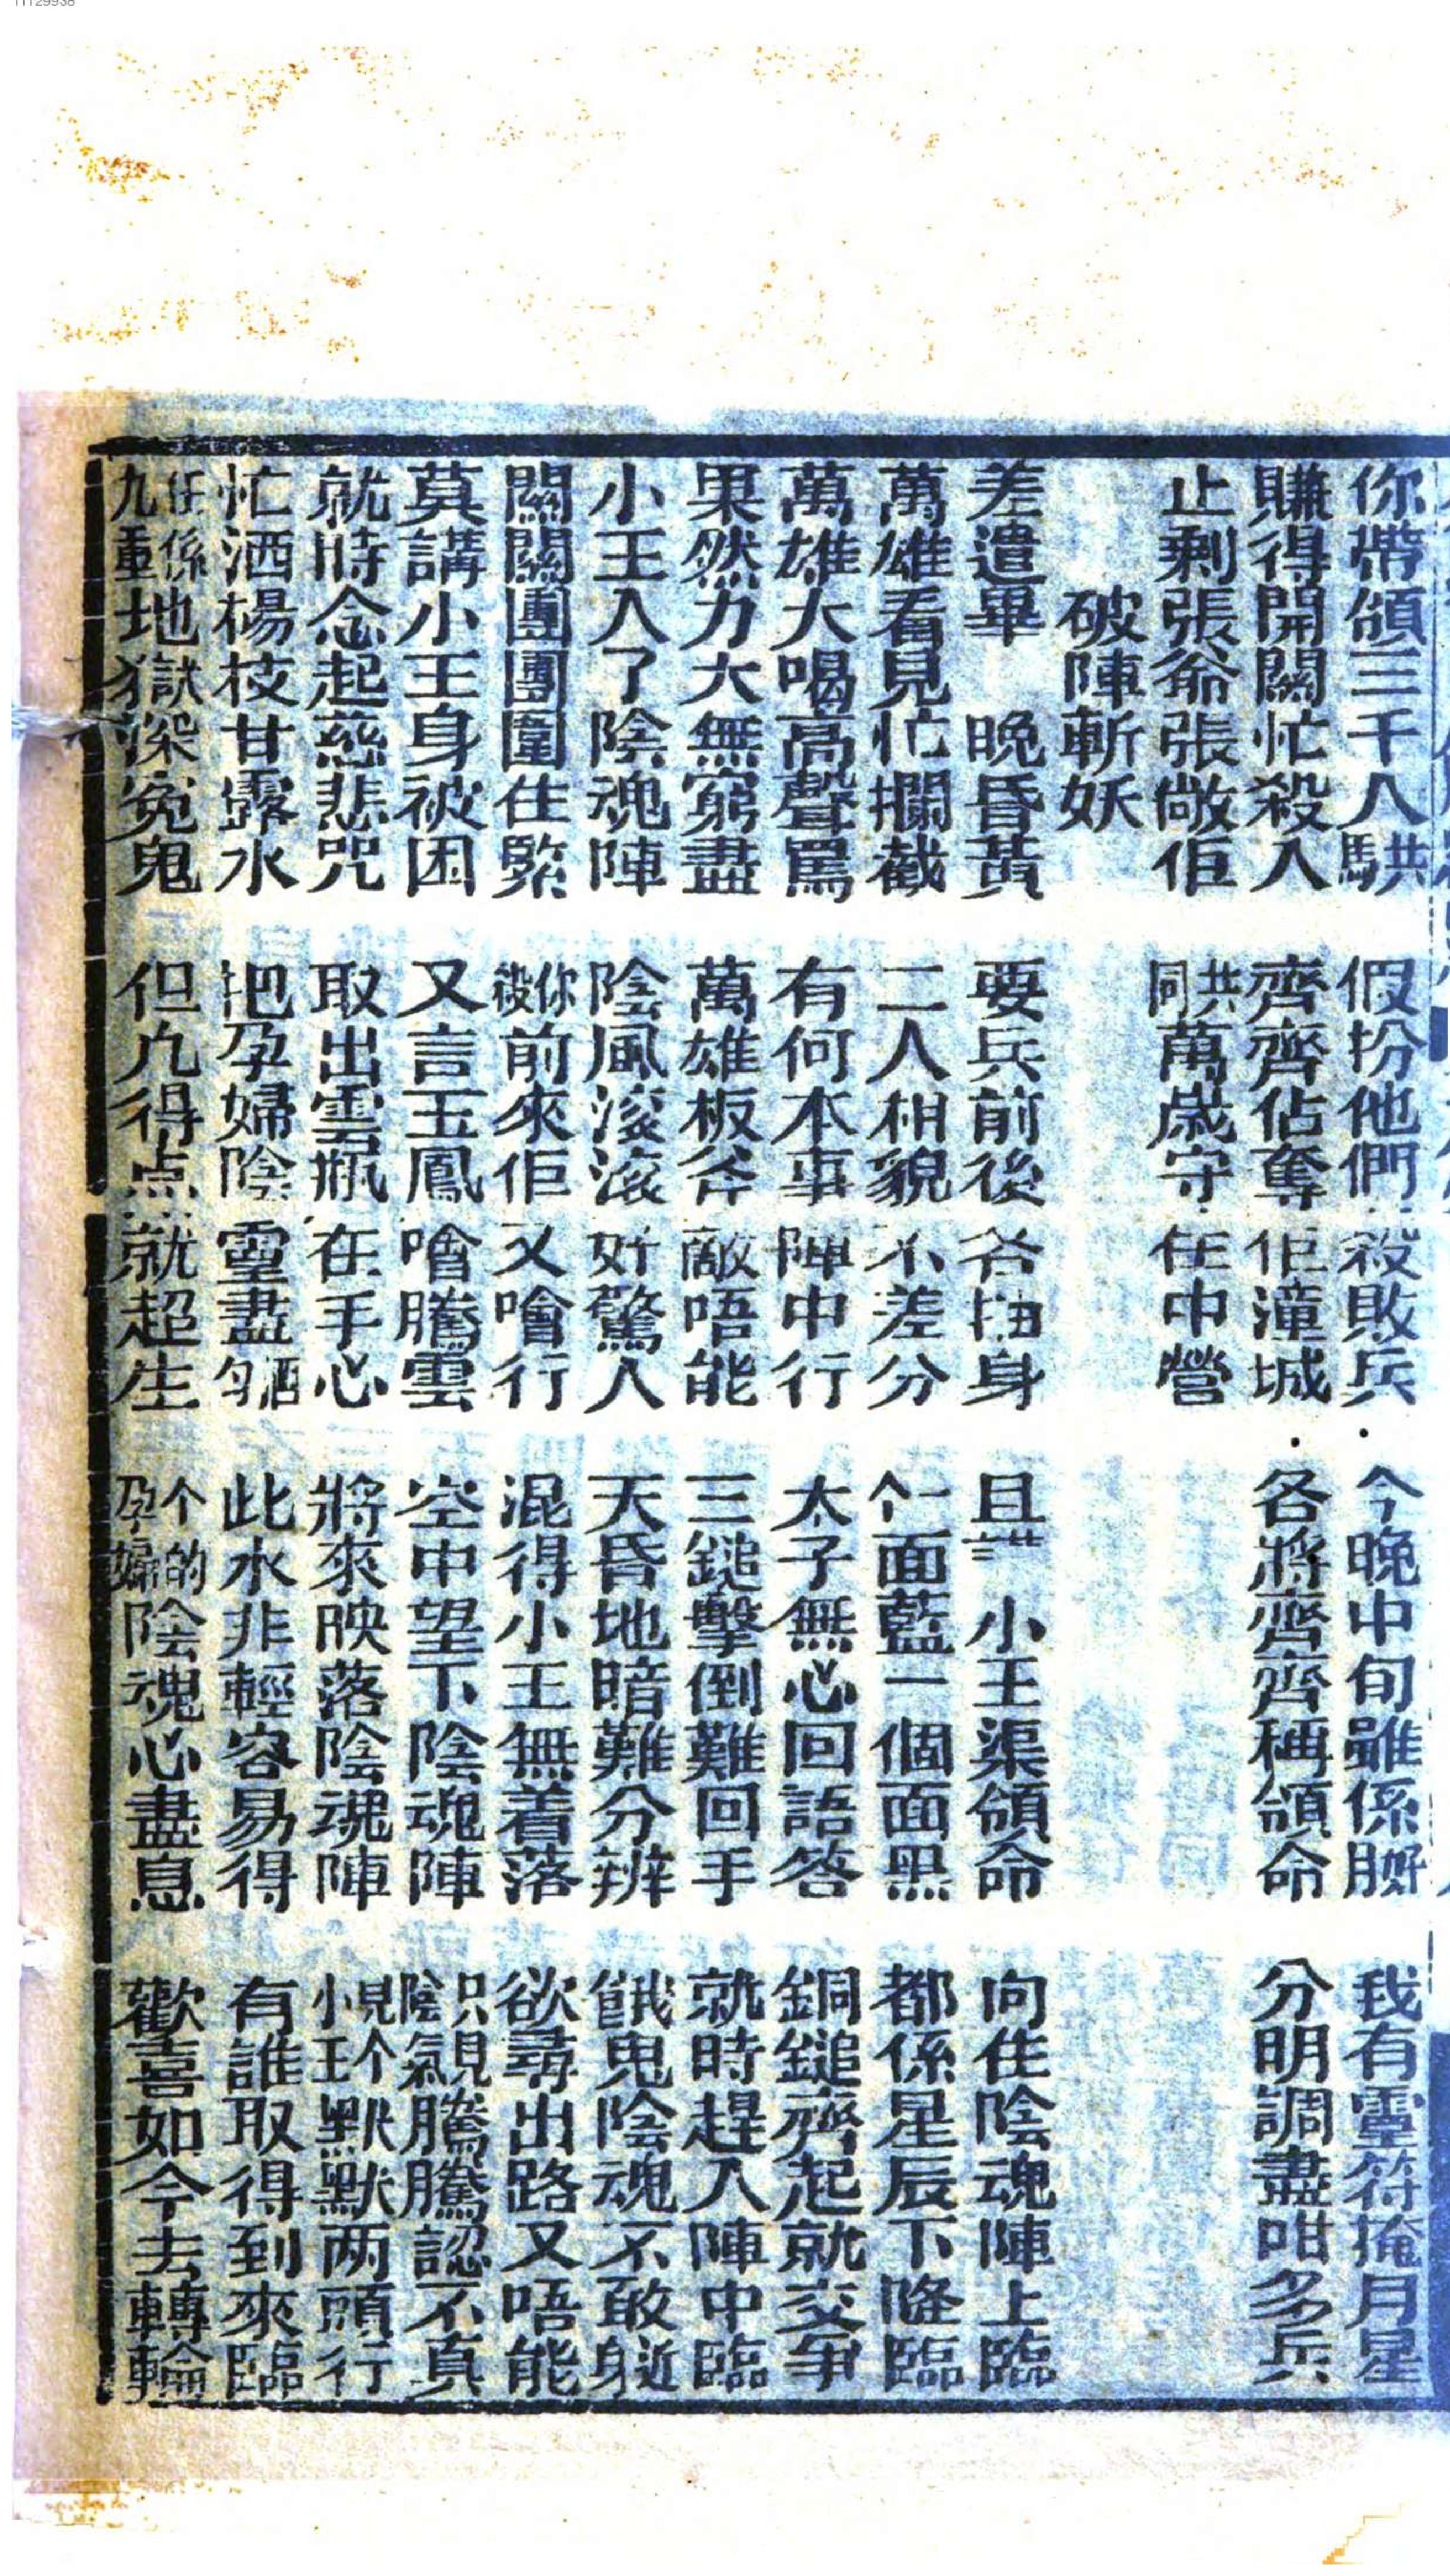 你帶領三千人馱共 假扮他們殺敗兵 今晚中旬雖係脷好 我有靈符掩月星
賺得開關忙殺入 齊齊佔奪佢潼城 各將齊齊稱領命 分明調盡咁多兵
止剩張爺張敞佢 共同萬歲守住中營
破陣斬妖
差遣畢 晚昏黃 要兵前後各扭身 且 小王渠領命 向住陰魂陣上臨
萬雄看見忙攔截 二人相貌不差分 一個面藍一個面黑 都係星辰下降臨
萬雄大喝高聲罵 有何本事陣中行 太子無心回語答 銅鎚齊起就交爭
果然力大無窮盡 萬雄板斧敵唔能 三鎚擊倒難回手 就時趕入陣中臨
小王入了陰魂陣 陰風滾滾好驚人 天昏地暗難分辨 餓鬼陰魂不敢近身
關關團團圍住緊 你後前來佢又噲行 混得小王無着落 欲尋出路又唔能
莫講小王身被困 又言玉鳳噲騰雲 空中望下陰魂陣 只見陰氣騰騰認不真
就時念起慈悲咒 取出雲瓶在手心 將來映落陰魂陣 見个小王默默兩頭行
忙洒楊枝甘露水 把孕婦陰靈盡洒勻 此水非輕容易得 有誰取得到來臨
任係九重地獄深兔鬼 但凡得点就超生 个的孕婦陰魂心盡息 歡喜如今去轉輪